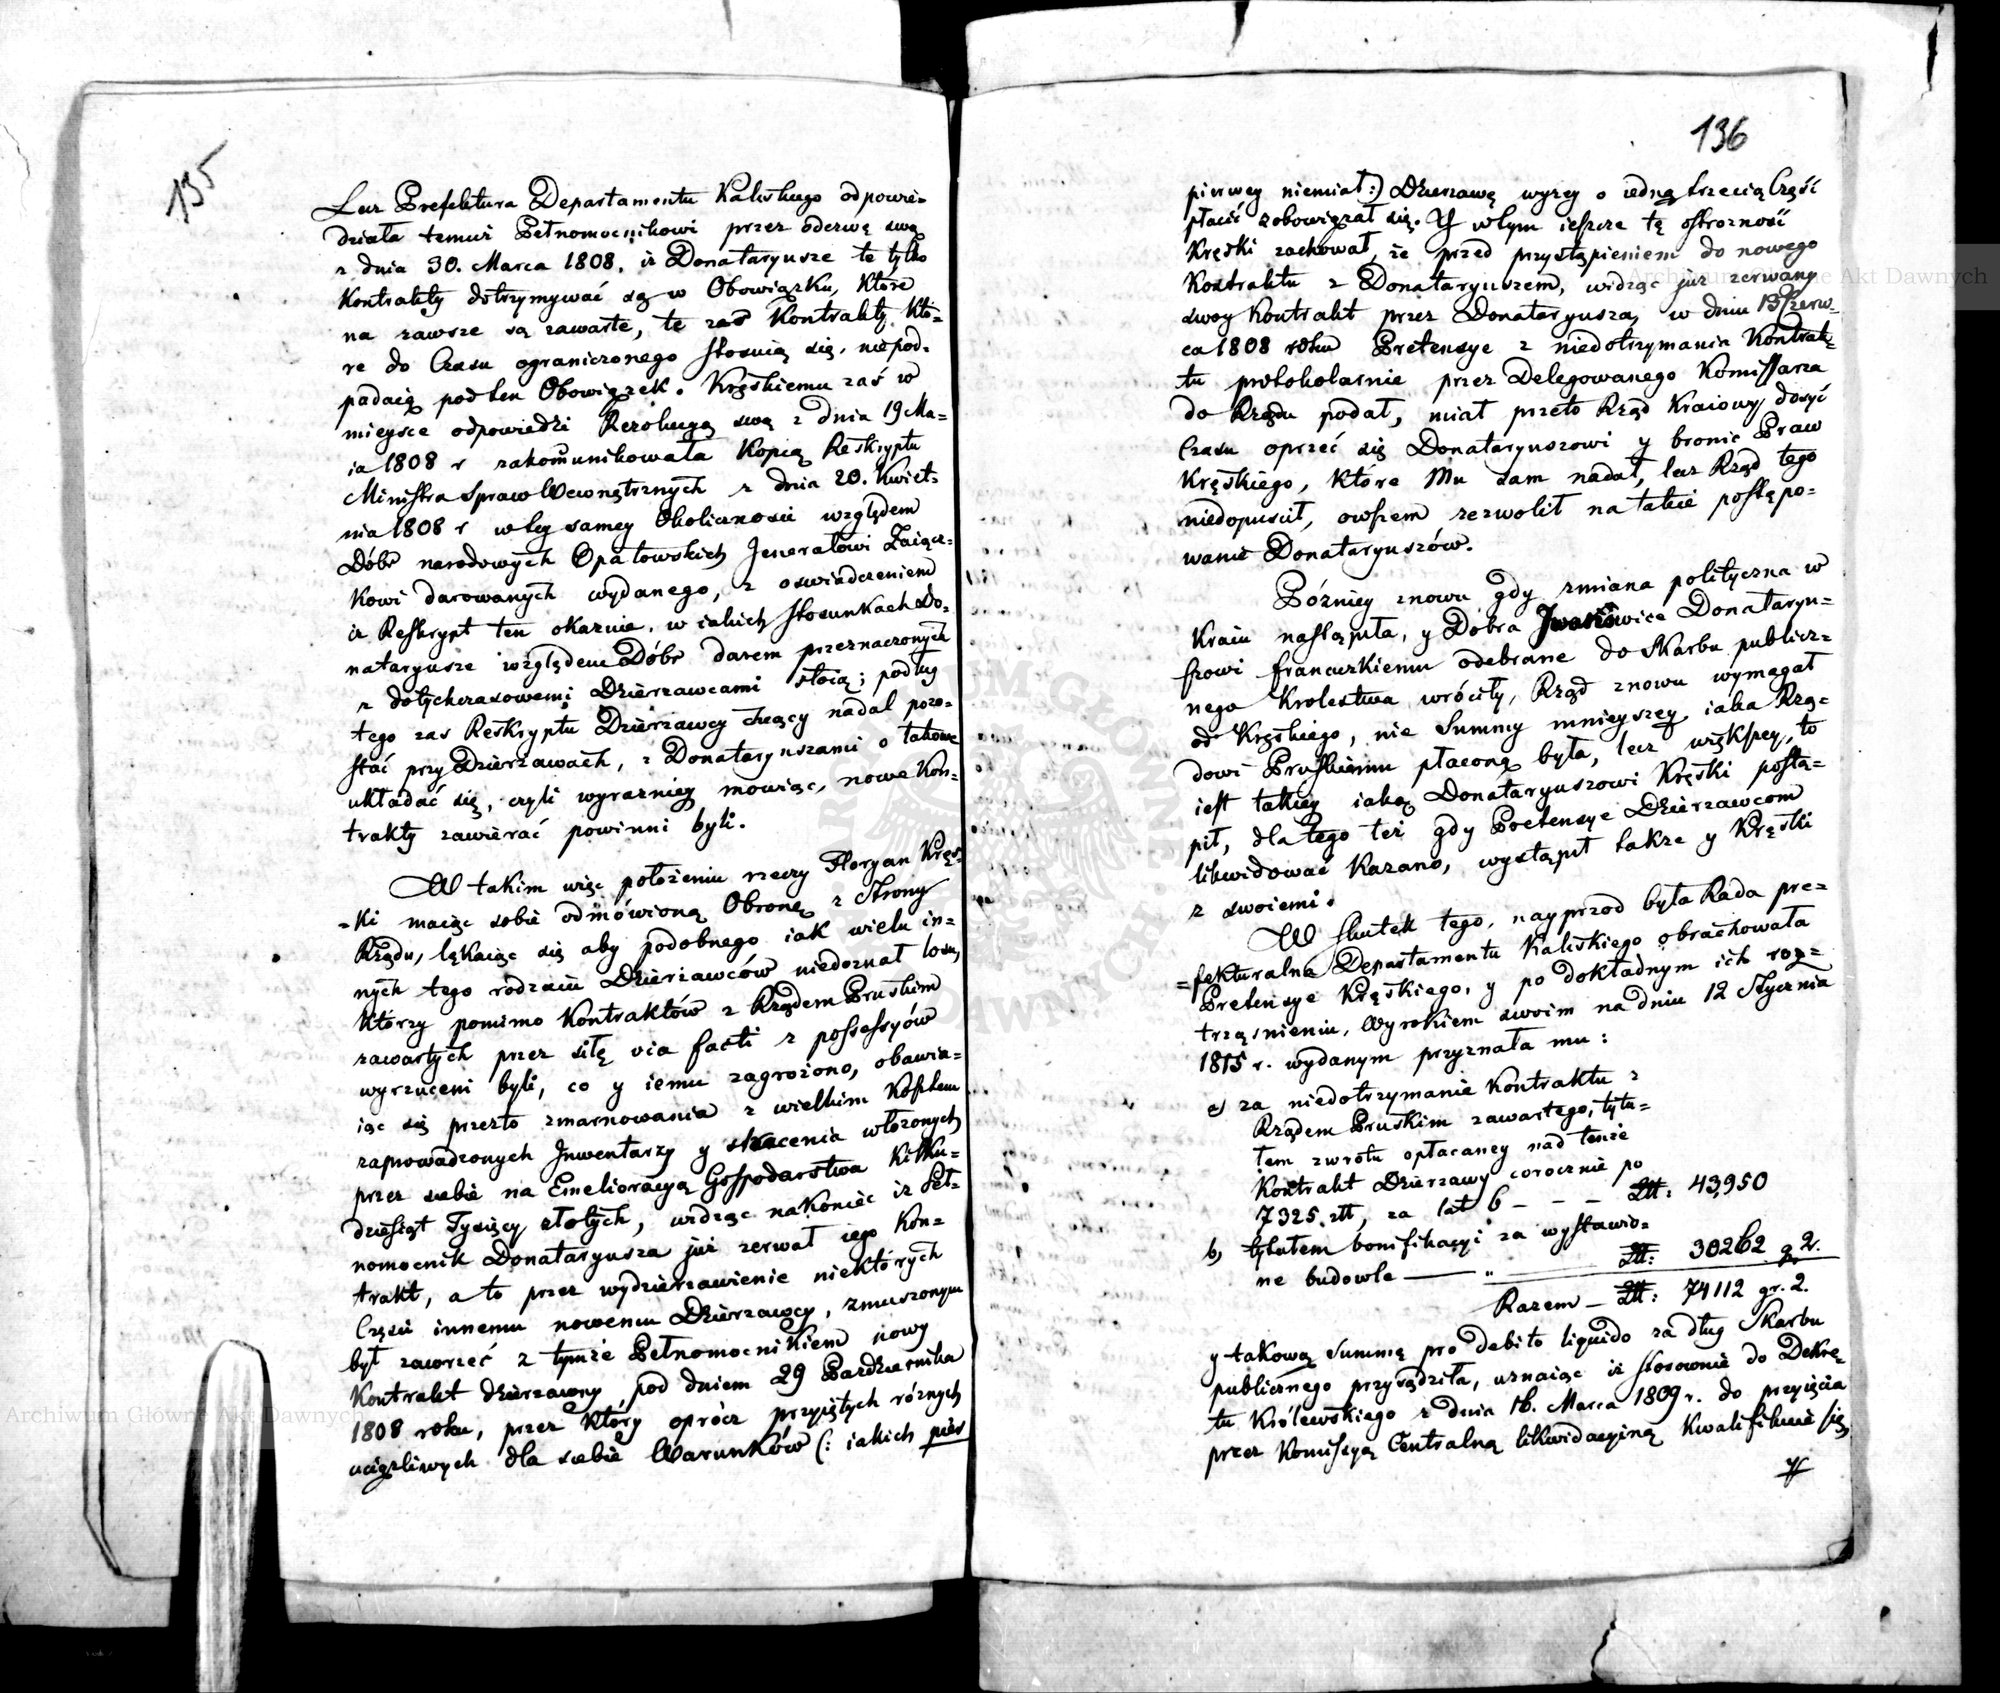 135
Lecz Prefektura Departamentu Kaliskiego odpowie-
działa temuż Pełnomocnikowi przez odezwę swą
z dnia 30. Marca 1808. iż Donataryusze te tylko
Kontrakty dotrzymywać są w Obowiązku, które
na zawsze są zawarte, te zaś Kontrakty, któ-
re do Czasu ograniczonego stosuią się, niepod-
padaią pod ten Obowiązek. Kręskiemu zaś w
mieysce odpowiedzi Rezolucyą swą z dnia 19 Ma-
ia 1808 r zakomunikowała Kopią Reskryptu
Ministra Spraw Wewnętrznych z dnia 20. Kwiet-
nia 1808 r w tey samey Okoliczności względem
Dóbr narodowych Opatowskich Jenerałowi Zaiącz-
kowi darowanych wydanego, z oświadczeniem
iż Reskrypt ten okazuie, w iakich stosunkach Do-
nataryusze względem Dóbr darem przeznaczonych
z dotychczasowemi Dzierzawcami stoią; podług
tego zaś Reskryptu Dzierzawcy chcący nadal pozo-
stać przy Dzierzawach, z Donataryuszami o takowe
układać się, czyli wyrazniey mówiąc, nowe Kon-
trakty zawierać powinni byli.
W takim więc położeniu rzeczy Floryan Kręs-
-ki maiąc sobie odmówioną Obronę z Strony
Rządu, lękaiąc się aby podobnego iak wielu in-
nych tego rodzaiu Dzierzawców niedoznał losu,
którzy pomimo Kontraktów z Rządem Pruskim
zawartych przez siłę via facti z possessyów
wyrzuceni byli, co y iemu zagrożono, obawia-
iąc się przeto zmarnowania z wielkim Kosztem
zaprowadzonych Inwentarzy y stracenia włożonych
przez siebie na Emelioracyą Gospodarstwa kilku-
dziesiąt Tysięcy złotych, widząc nakoniec iż Peł-
nomocnik Donataryusza już zerwał iego Kon-
trakt, a to przez wydzierzawienie niektórych
Części innemu nowemu Dzierzawcy, zmuszonym
był zawrzeć z tymże Pełnomocnikiem nowy
Kontrakt dzierzawny pod dniem 29 Pazdziernika
1808 roku, przez który oprócz przyiętych różnych
uciążliwych dla siebie Warunków (: iakich pier
136
pierwey niemiał :) Dzierzawę wyzey o iedną trzecią Część
płacić zobowiązał się. Y w tym ieszcze tę ostrozność
Kręski zachował, że przed przystąpieniem do nowego
Kontraktu z Donataryuszem, widząc już zerwany
swoy Kontrakt przez Donataryusza, w dniu 13 Czerw-
ca 1808 roku Pretensye z niedotrzymania Kontrak-
tu protokolarnie przez Delegowanego Komissarza
do Rządu podał, miał przeto Rząd Kraiowy dosyć
Czasu oprzeć się Donataryuszowi y bronić Praw
Kręskiego, które Mu sam nadał, lecz Rząd tego
niedopuścił, owszem zezwolił na takie postępo-
wanie Donataryuszów.
Pózniey znowu gdy zmiana polityczna w
Kraiu nastąpiła, y Dobra Iwanowice Donataryu-
szowi francuzkiemu odebrane do Skarbu publicz-
nego Krolestwa wróciły, Rząd znowu wymagał
od Kręskiego, nie Summy mnieyszey iaka Rzą-
dowi Pruskiemu płaconą była, lecz większey, to
iest takiey iaką Donataryuszowi Kręski postą-
pił, dla tego też gdy Pretensye Dzierzawcom
likwidować kazano, wystąpił także y Kręski
z swoiemi.
W skutek tego, nayprzód była Rada pre-
=fekturalna Departamentu Kaliskiego obrachowała
Pretensye Kręskiego, y po dokładnym ich roz-
trząśnieniu, Wyrokiem swoim na dniu 12 Stycznia
1815 r. wydanym przyznała mu:
a) za niedotrzymanie Kontraktu z
Rządem Pruskim zawartego, tytu-
łem zwrotu opłacaney nad tenże
Kontrakt Dzierzawy corocznie po
7325. złt, za lat 6 - - - Złt: 43,950
b) tytułem bonifikacyi za wystawio-
ne budowle — " Złt: 30262 g. 2.
Razem — Złt: 74112 gr. 2.
y takową Summę pro debito liquido za dług Skarbu
publicznego przysądziła, uznaiąc iż stosownie do Dekre-
tu Królewskiego z dnia 16. Marca 1809 r. do przyięcia
przez Komissyą Centralną likwidacyiną kwalifikuie się,
y